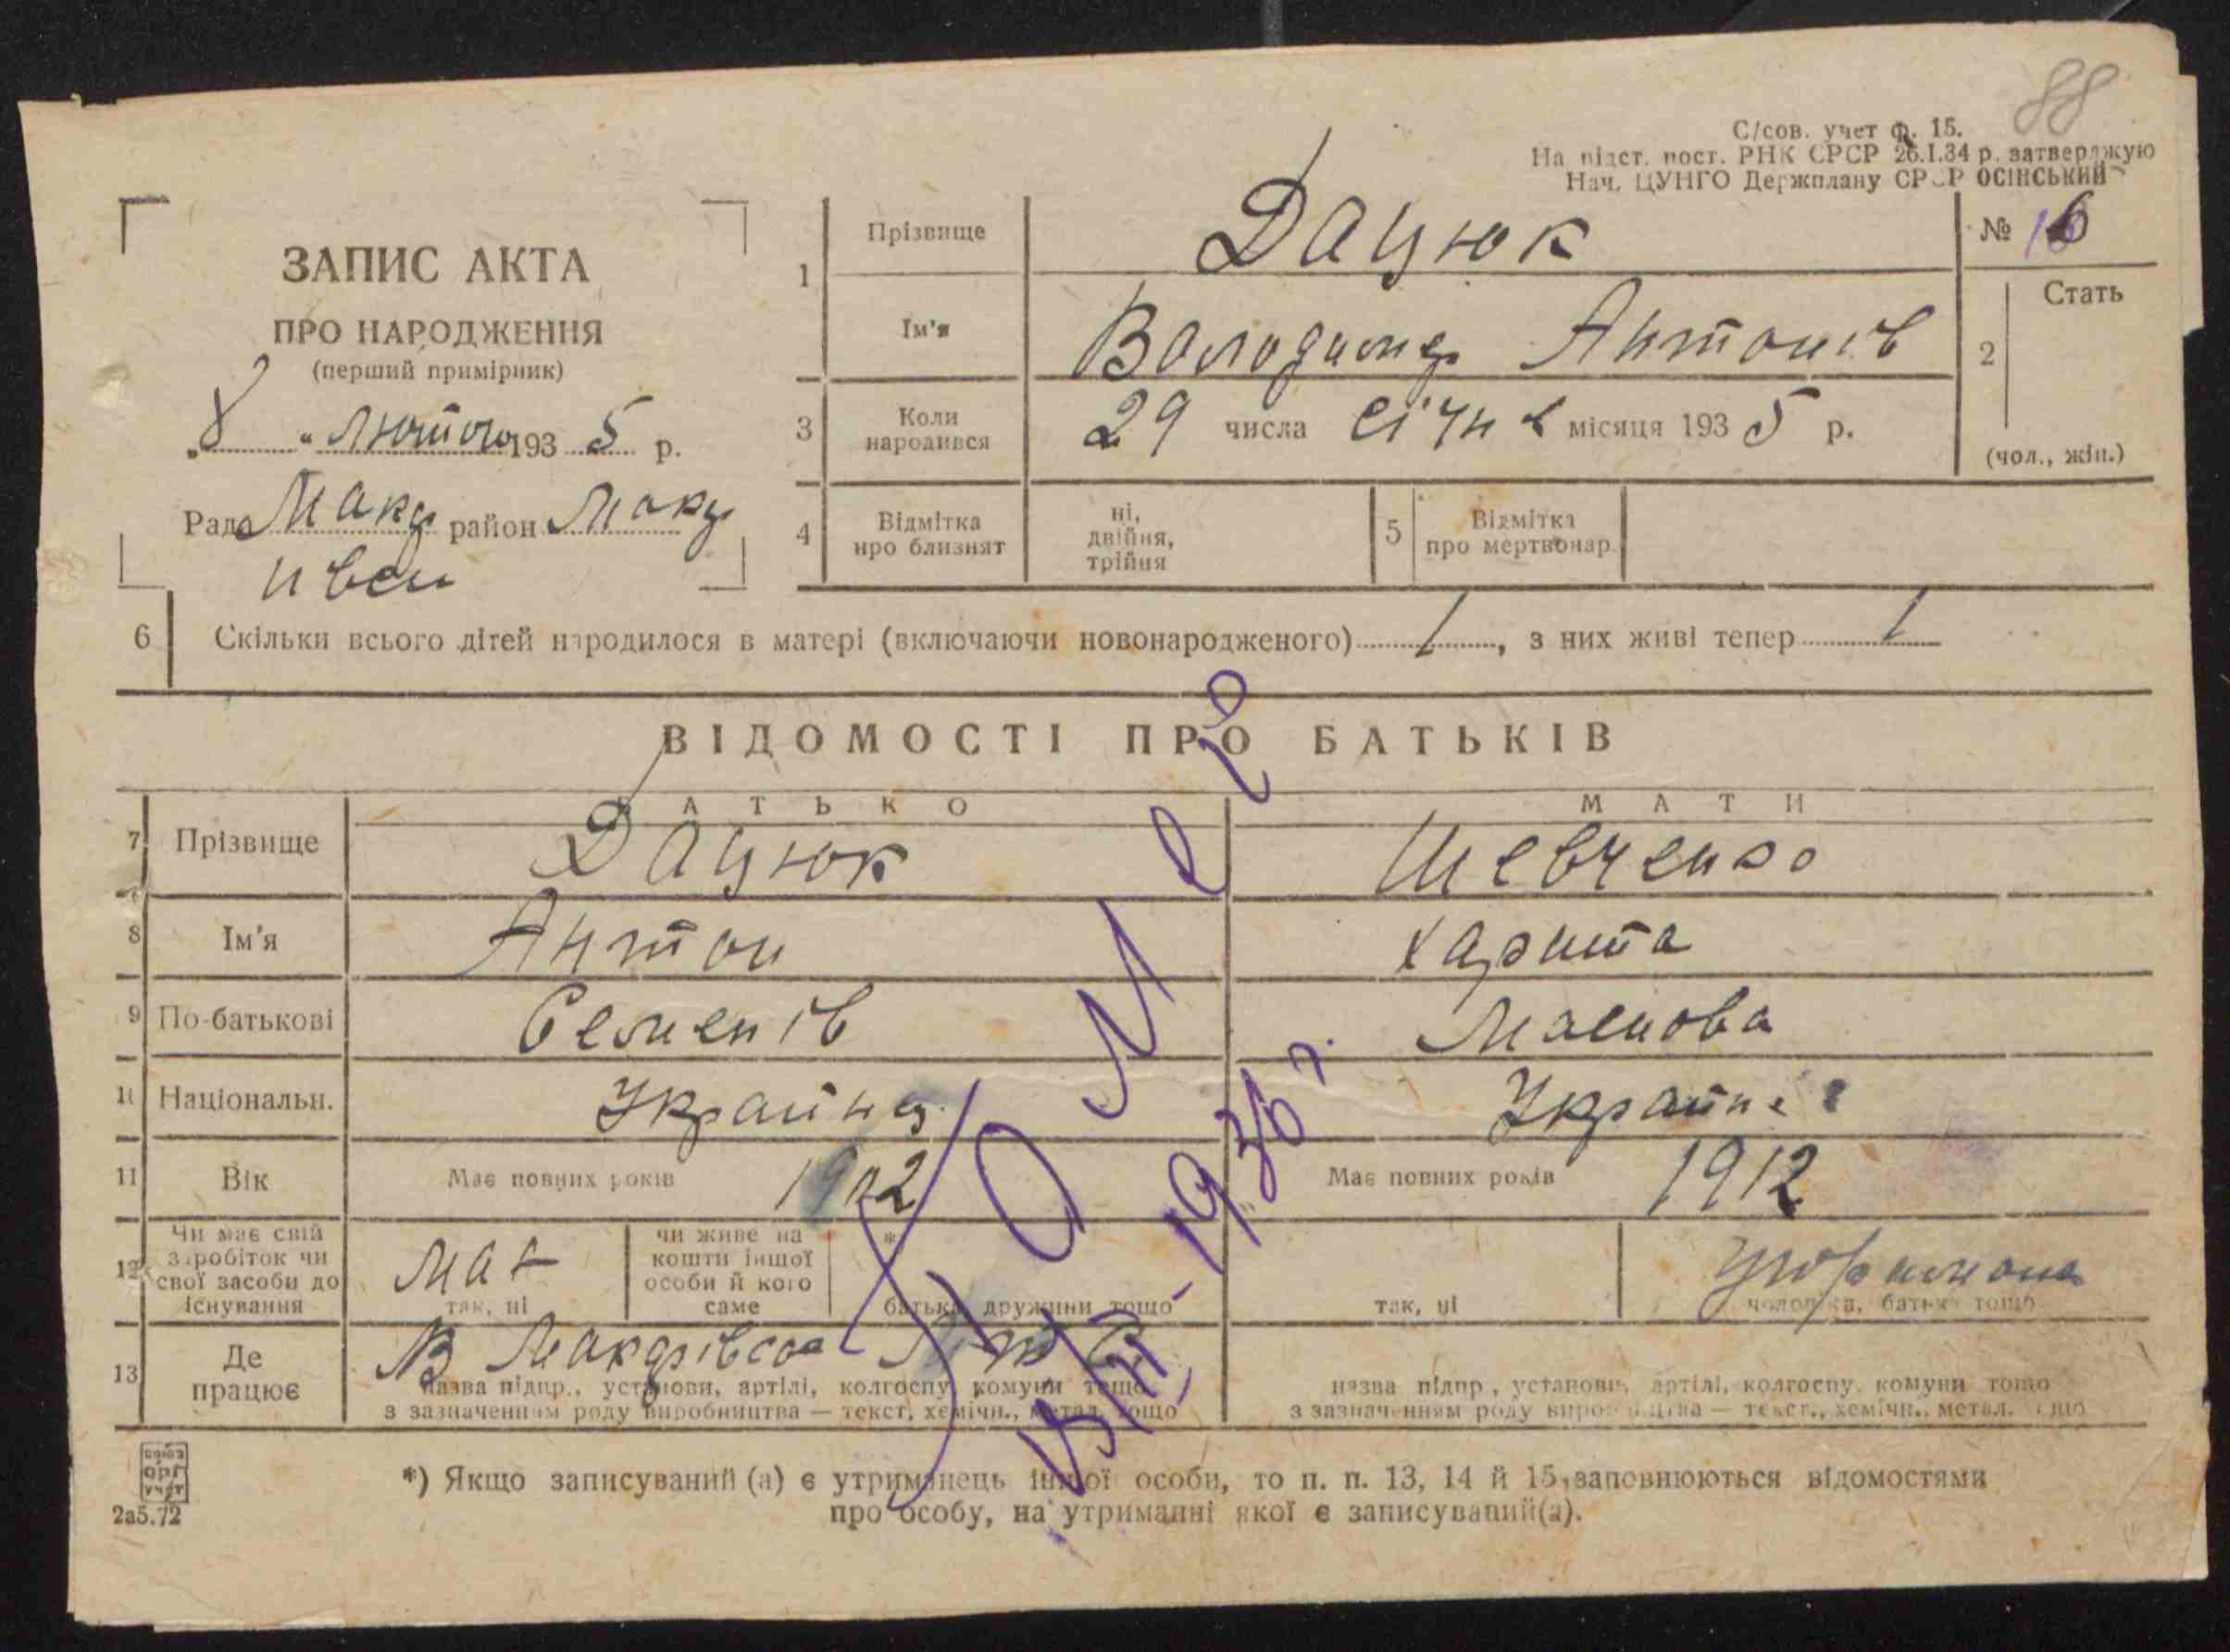 88
С/сов. учет ф. 15.
На підст. пост. РНК СРСР 26.I.34 р. затверджую
Нач. ЦУНГО Держплану СРСР ОСІНСЬКИЙ
ЗАПИС АКТА
ПРО НАРОДЖЕННЯ
(перший примірник)
„ 8 “ лютого 193 5 р.
Рада Макар район Макар
ивськ
1 Прізвище Дацюк № 16
Ім'я Володимир Антонів
2 Стать
(чол., жін.)
3 Коли народився 29 числа січня місяця 193 5 р.
4 Відмітка про близнят ні, двійня, трійня
5 Відмітка про мертвонар.
6 Скільки всього дітей народилося в матері (включаючи новонародженого) 1, з них живі тепер 1
ВІДОМОСТІ ПРО БАТЬКІВ
БАТЬКО МАТИ
7 Прізвище Дацюк Шевченко
8 Ім'я Антон Харита
9 По-батькові Семенів
10 Національн. Українец Україн
11 Вік Має повних років 1902 Має повних років 1912
12 Чи має свій заробіток чи свої засоби до існування має так, ні чи живе на кошти іншої особи й кого саме *) батька, дружини тощо так, ні чоловіка, батька тощо
13 Де працює В
назва підпр., установи, артілі, колгоспу, комуни тощо назва підпр., установи, артілі, колгоспу, комуни тощо
з зазначенням роду виробництва — текст, хемічн., метал. тощо з зазначенням роду виробництва — текст., хемічн., метал. тощо
Помер
1936 г.
союз
орг
учет
2а5.72
*) Якщо записуваний (а) є утриманець іншої особи, то п. п. 13, 14 й 15, заповнюються відомостями
про особу, на утриманні якої є записуваний(а).